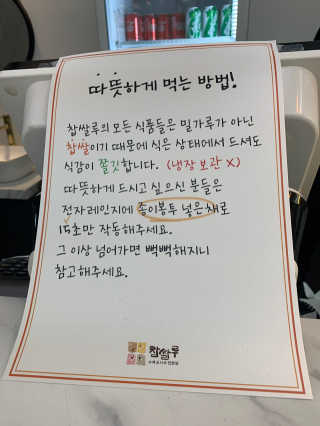 따뜻하게 먹는 방법!
찹쌀루의 모든 식품들은 밀가루가 아닌
찹쌀이기 때문에 식은 상태에서 드셔도
식감이 쫄깃합니다. (냉장보관 X)
따뜻하게 드시고 싶으신 분들은
전자레인지에 종이봉투 넣은채로
15초만 작동해주세요.
그 이상 넘어가면 뻑뻑해지니
참고해주세요.
찹쌀루